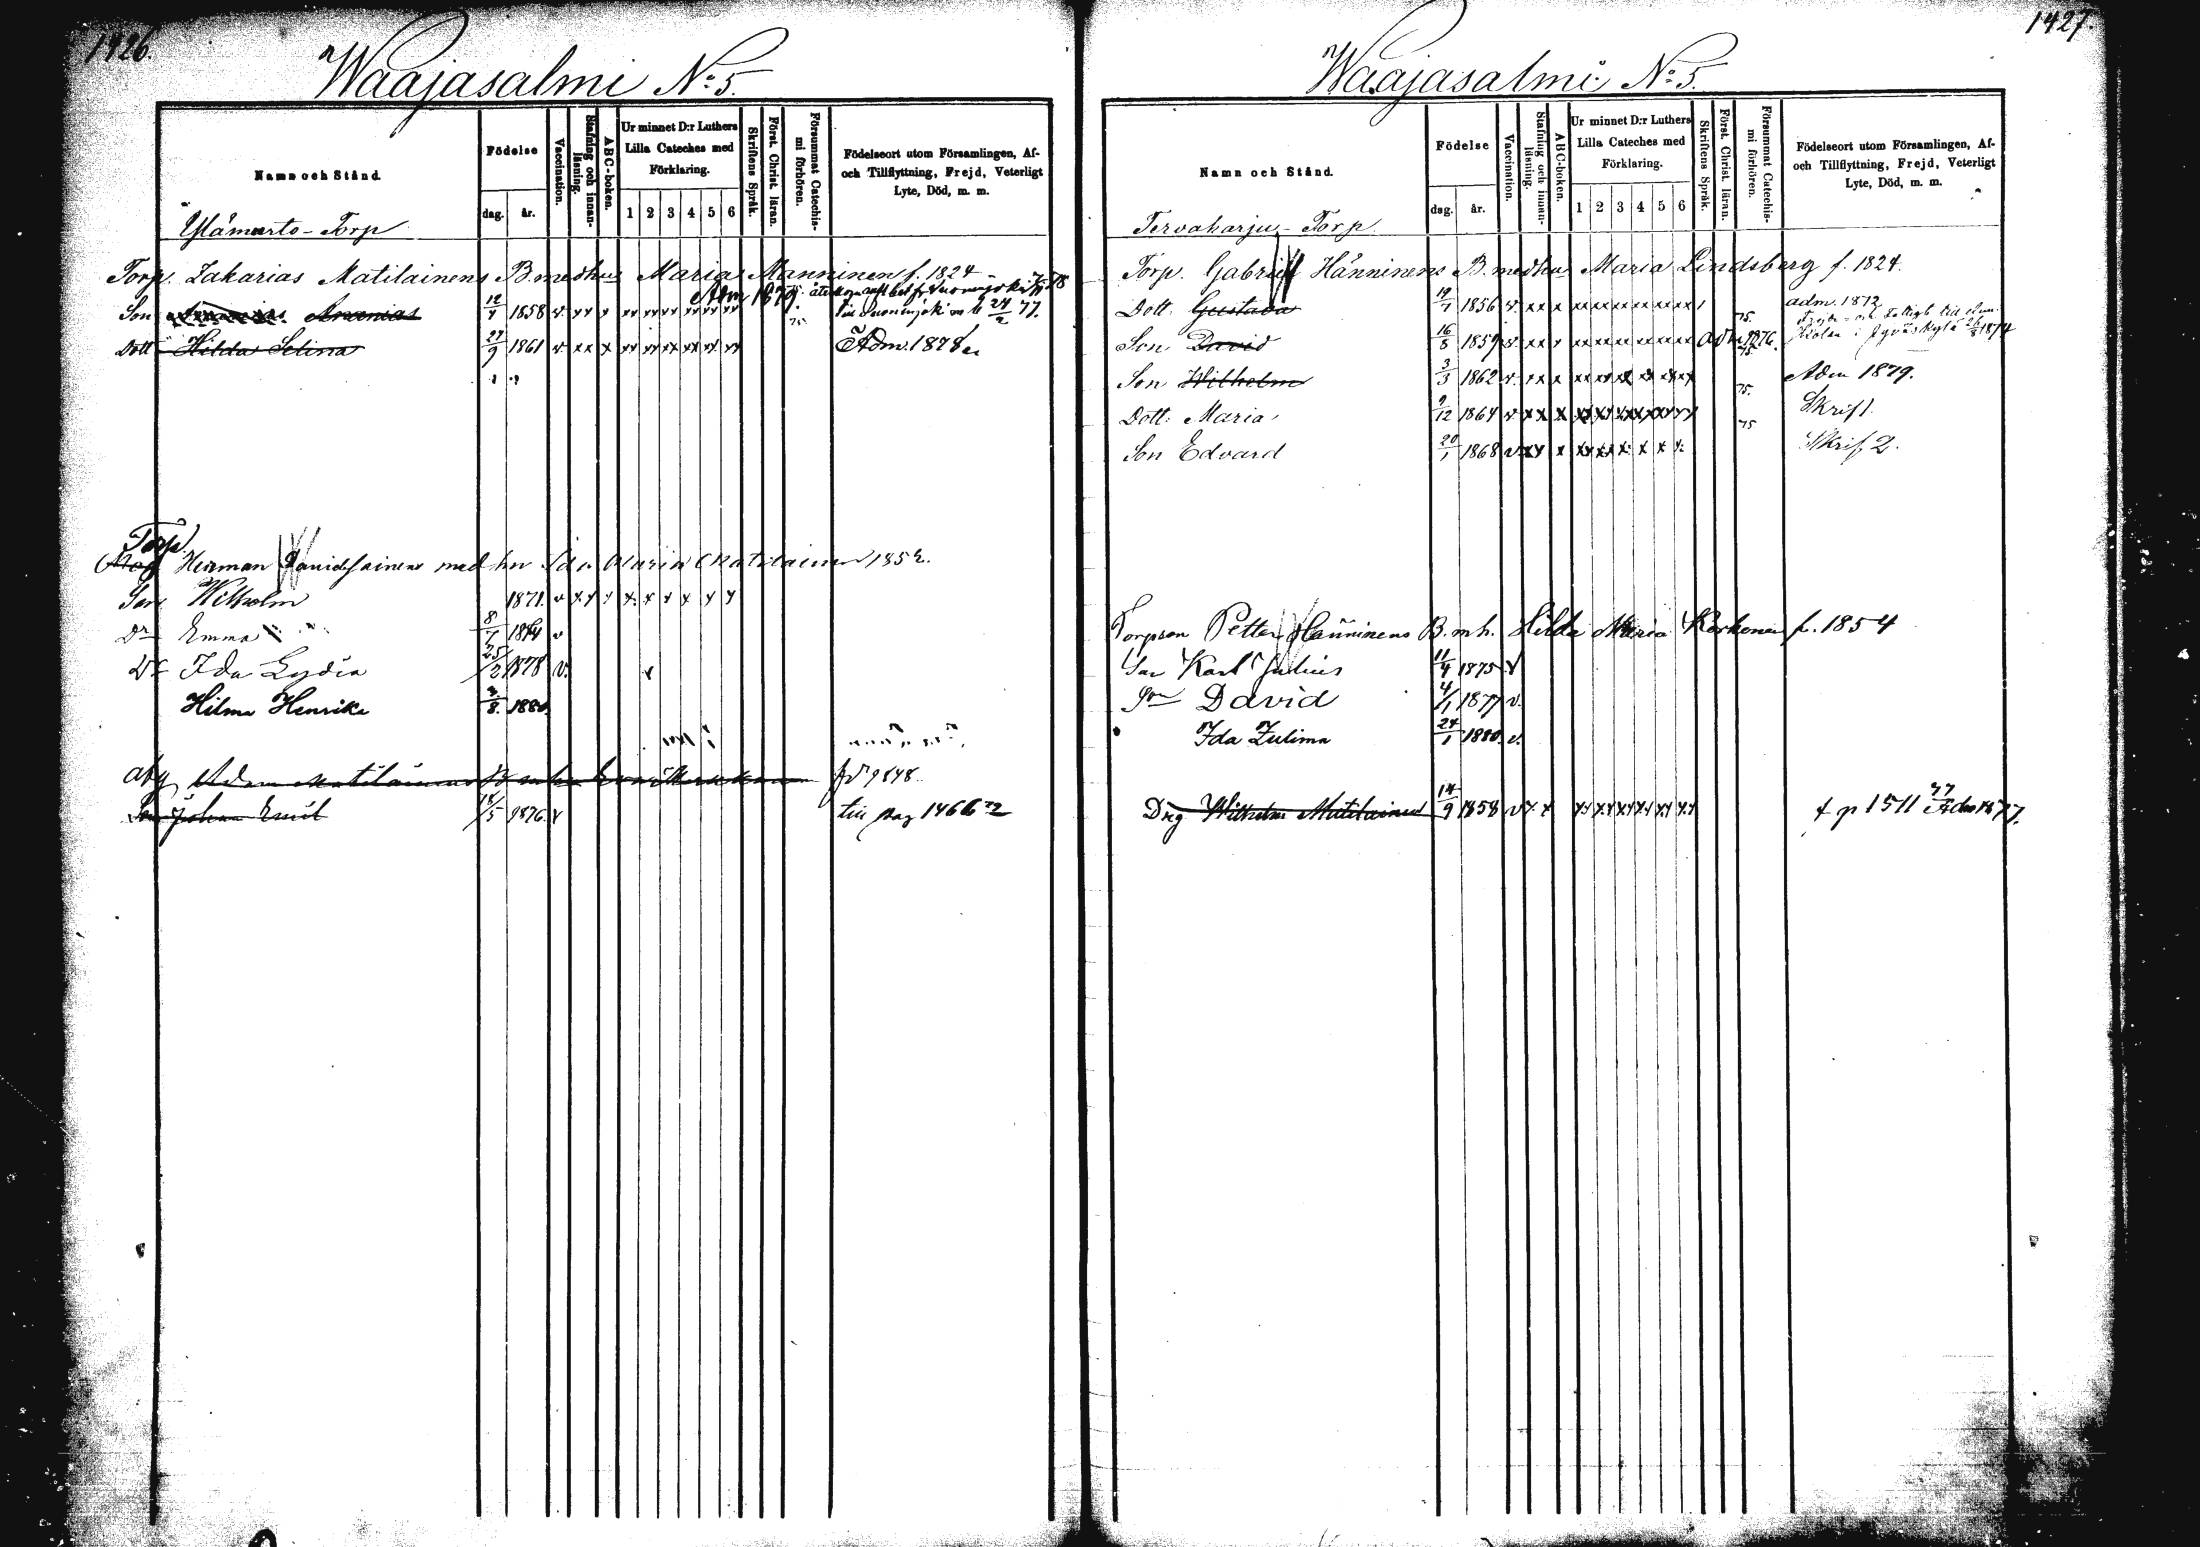 1426.
Waajasalmi No 5.
Namn och Stånd.
Födelse
dag. år.
Vaccination.
Stafning och innanläsning.
ABC-boken.
Ur minnet D:r Luthers Lilla Cateches med Förklaring.
1 2 3 4 5 6
Skriftens Språk.
Först. Christ. läran.
Försummat Catechismi förhören.
Födelseort utom Församlingen, Af- och Tillflyttning, Frejd, Veterligt Lyte, Död, m. m.
Torp
Torp. Zakarias Matilainens B. med hus Maria Manninen f. 1824
Adm 1879.
Son Ananias 12/7 1858 v. xx x xx xx xx xx xx xx 24/2 77.
Dott Hilda Selina 27/9 1861 v. xx x xx xx xx xx xx xx Adm. 1878
Torp.
Herman med hu Ida Maria Matilainen 1852.
Son Wilhelm 1871. v x x x x x x x x x
Dr Emma 8/7 1874 v
Dr Ida Lydia 25/2 1878 v.
Hilma Henrika 3/8. 1880.
Adam Matilainen
Son Johan Emil 18/5 1876 v till pag 1466
1427.
Waajasalmi No 5.
Namn och Stånd.
Födelse
dag. år.
Vaccination.
Stafning och innanläsning.
ABC-boken.
Ur minnet D:r Luthers Lilla Cateches med Förklaring.
1 2 3 4 5 6
Skriftens Språk.
Först. Christ. läran.
Försummat Catechismi förhören.
Födelseort utom Församlingen, Af- och Tillflyttning, Frejd, Veterligt Lyte, Död, m. m.
Tervaharju - Torp.
Torp. Gabriel Hänninens B. med hus Maria Lindsberg f. 1824.
Dott. Gustava 19/7 1856 v. xx x xx xx xx xx xx xx 75. adm. 1872
Son David 16/8 1859 v. xx x xx xx xx xx xx xx adm 1876. i Jyväskylä 1874
Son Wilhelm 3/3 1862 v. xx x xx xx xx xx xx xx 75. Adm 1879.
Dott. Maria 9/12 1864 v. xx x xx xx xx xx xx xx 75 Skrif 1.
Son Edvard 20/1 1868 v xx x xx xx x x x x Skrif 2.
Torpson Petter Hänninens B. m h. Hilda Maria Korhonen f. 1854
Son Karl Julius 11/4 1875 v
Son David 4/1 1877 v.
Ida Zulima 24/1 1880. v.
Drg Wilhelm Matilainen 14/9 1858 v x x xx xx xx xx xx xx p 1511 Adm 1877.